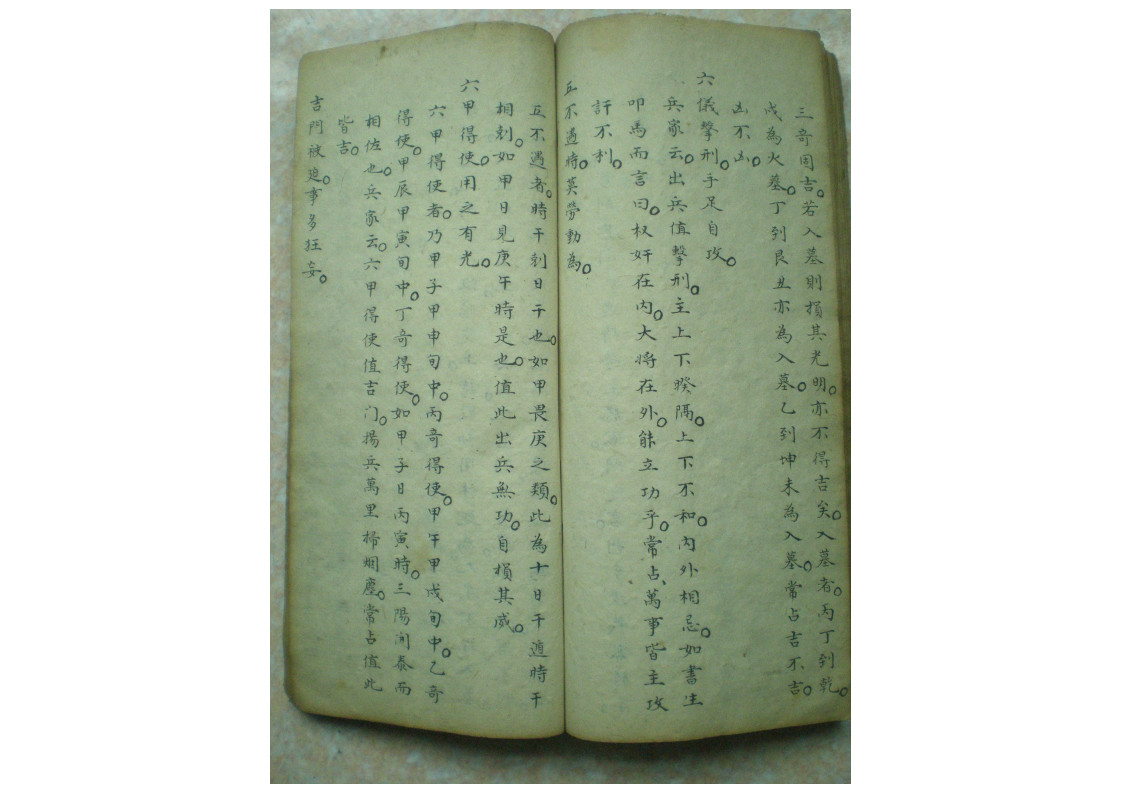 三奇固吉。若入墓則損其光明。亦不得吉矣。入墓者。丙丁到乾。
戌為火墓。丁到艮丑亦為入墓。乙到坤未為入墓。常占吉不吉。
凶不凶。
六儀擊刑。手足自攻。
兵家云。出兵值擊刑。主上下暌隔。上下不和。内外相忌。如書生
叩馬而言曰。权奸在内。大将在外。能立功乎。常占萬事皆主攻
訐不利。
五不遇時。莫勞動為。
五不遇者。時干剋日干也。如甲畏庚之類。此為十日干遁時干
相剋。如甲日見庚午時是也。值此出兵無功。自損其威。
六甲得使。用之有光。
六甲得使者。乃甲子甲申旬中。丙奇得使。甲午甲戌旬中。乙奇
得使。甲辰甲寅旬中。丁奇得使。如甲子日丙寅時。三陽開泰而
相佐也。兵家云。六甲得使值吉门。揚兵萬里掃烟塵。常占值此
皆吉。
吉門被迫。事多狂妄。